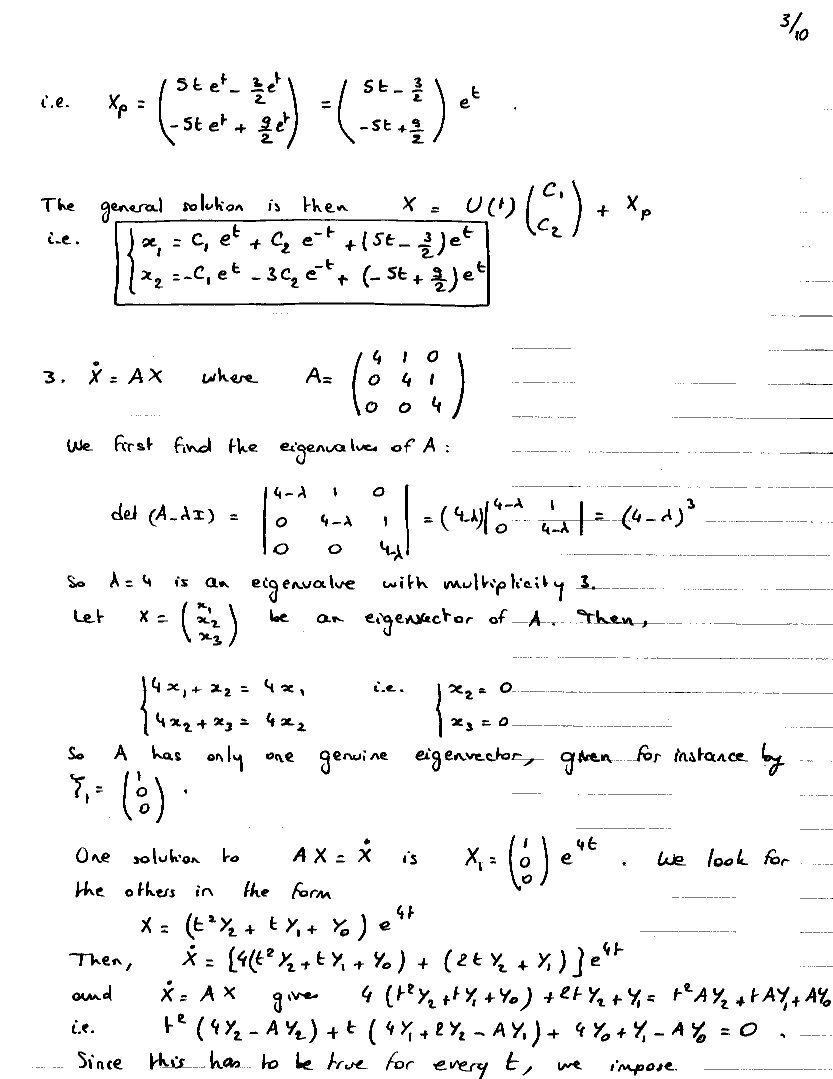 3/10
i.e. Xp = ( 5t e^t - 3/2 e^t ; -5t e^t + 9/2 e^t ) = ( 5t - 3/2 ; -5t + 9/2 ) e^t .
The general solution is then X = U(t) ( C₁ ; C₂ ) + Xp
i.e. { x₁ = C₁ e^t + C₂ e^-t + (5t - 3/2) e^t
x₂ = -C₁ e^t - 3C₂ e^-t + (-5t + 9/2) e^t
3. Ẋ = AX where A = ( 4 1 0 ; 0 4 1 ; 0 0 4 )
We first find the eigenvalues of A :
det (A-λI) = | 4-λ 1 0 ; 0 4-λ 1 ; 0 0 4-λ | = (4-λ) | 4-λ 1 ; 0 4-λ | = (4-λ)³
So λ=4 is an eigenvalue with multiplicity 3.
Let X = ( x₁ ; x₂ ; x₃ ) be an eigenvector of A. Then,
{ 4x₁ + x₂ = 4x₁ i.e. { x₂ = 0
4x₂ + x₃ = 4x₂ x₃ = 0
So A has only one genuine eigenvector, given for instance by
ξ₁ = ( 1 ; 0 ; 0 ) .
One solution to AX = Ẋ is X₁ = ( 1 ; 0 ; 0 ) e^4t . We look for
the others in the form
X = (t²Y₂ + tY₁ + Y₀) e^4t
Then, Ẋ = [4(t²Y₂ + tY₁ + Y₀) + (2tY₂ + Y₁)] e^4t
and Ẋ = AX gives 4 (t²Y₂ + tY₁ + Y₀) + 2tY₂ + Y₁ = t²AY₂ + tAY₁ + AY₀
i.e. t² (4Y₂ - AY₂) + t (4Y₁ + 2Y₂ - AY₁) + 4Y₀ + Y₁ - AY₀ = 0 .
Since this has to be true for every t, we impose